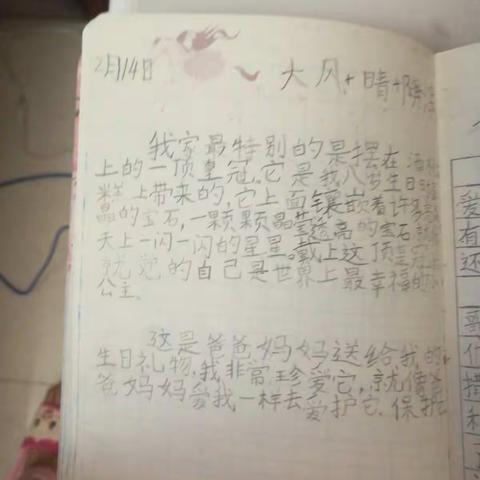 2月14日 大风+晴+阴
我家最特别的是摆在
上的一顶皇冠。它是我八岁生日蛋
糕上带来的,它上面镶嵌着许多
的宝石,一颗颗晶莹透亮的宝石就像
天上一闪一闪的星星。戴上这顶皇冠
就觉的自己是世界上最幸福的小
公主。
这是爸爸妈妈送给我的
生日礼物,我非常珍爱它,就像爸
爸妈妈爱我一样去爱护它、保护
爱
有
还
哥
们
和